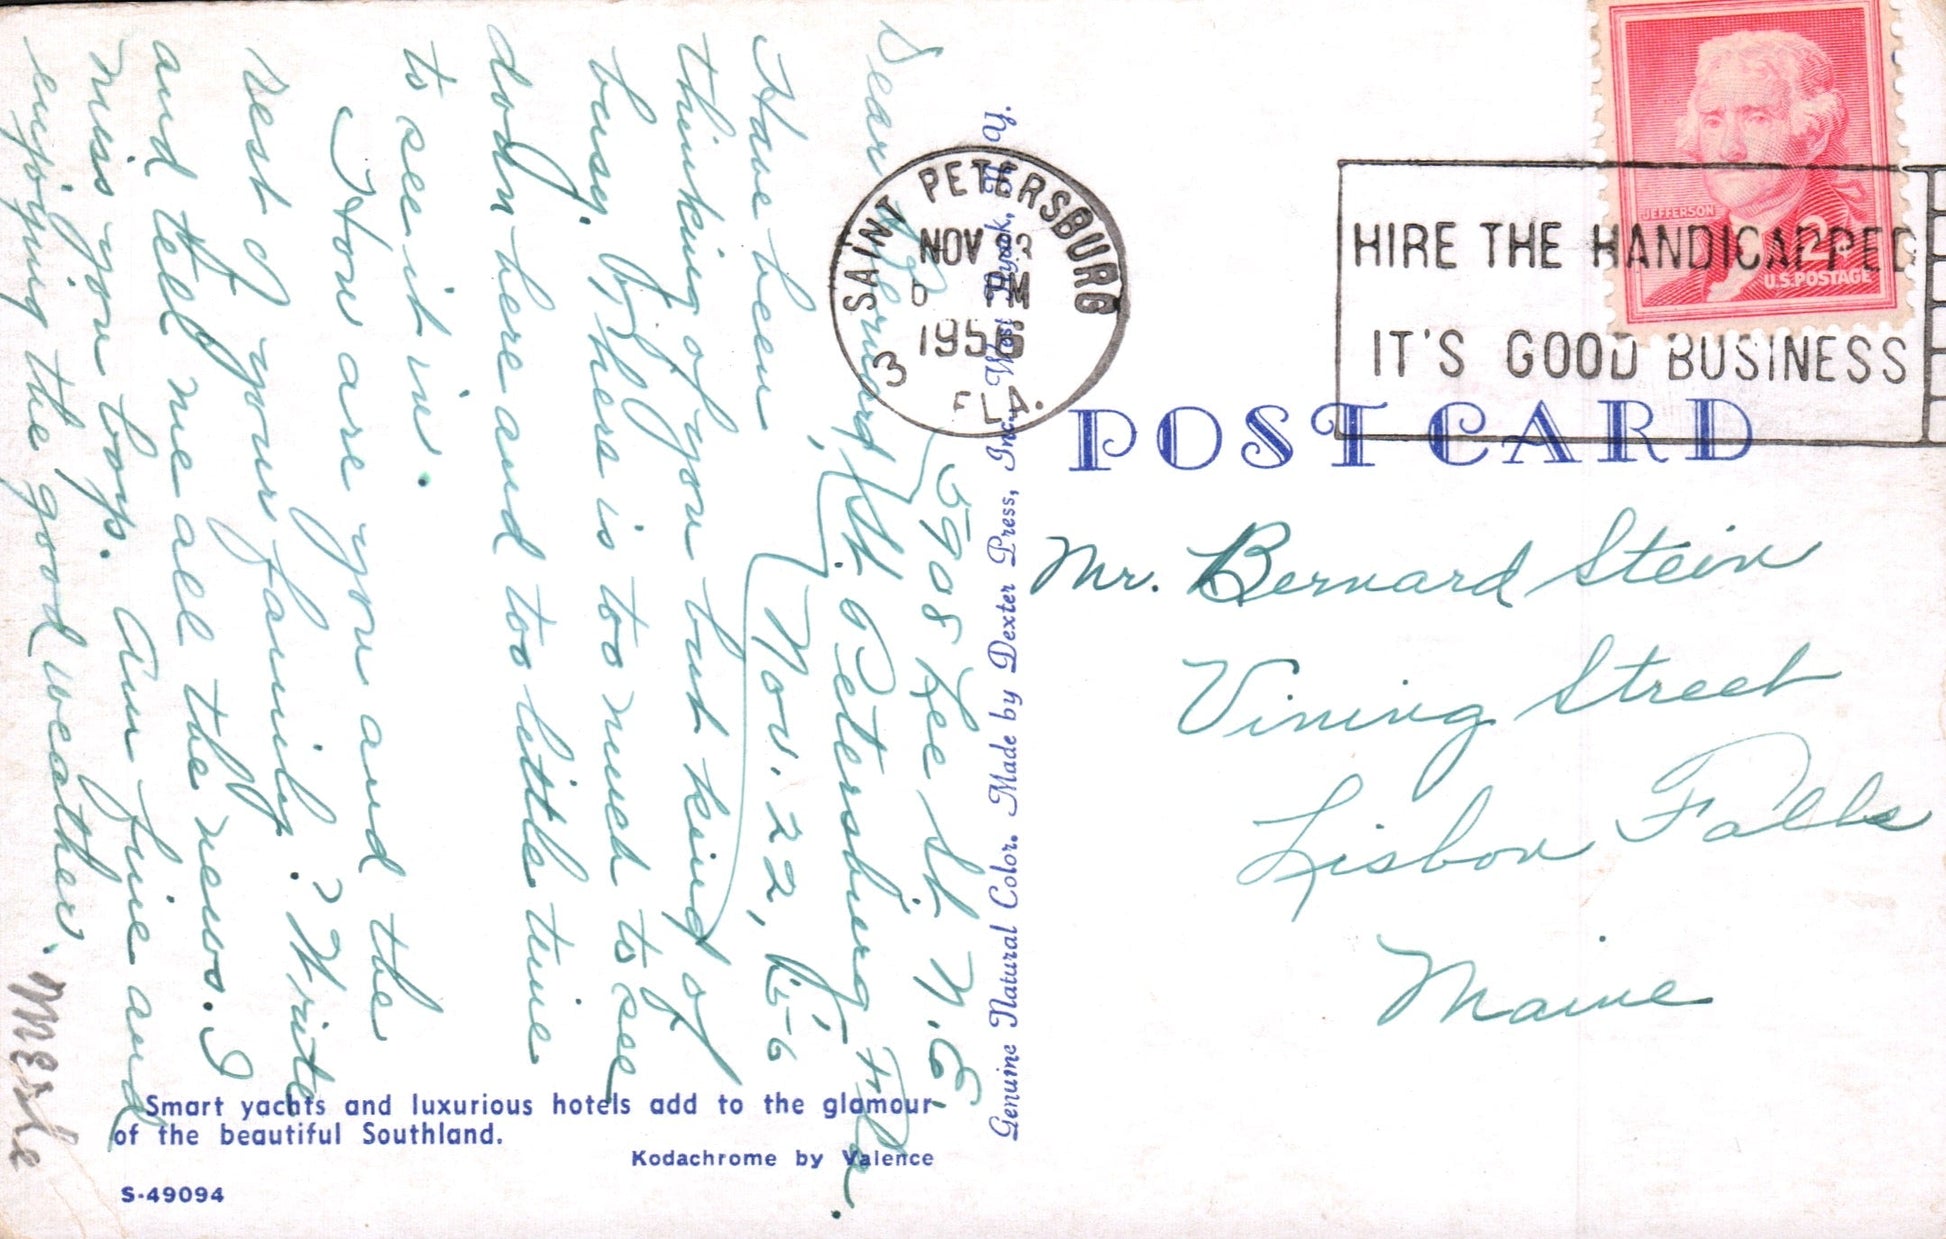 5908 Lee St. N.E.
St. Petersburg Fla.
Nov. 22, 1956
Dear Bernard,
Have been
thinking of you but kind of
busy. There is too much to see
down here and too little time
to see it in.
How are you and the
rest of your family? Write
and tell me all the news. I
miss you boys. Am fine and
enjoying the good weather.
Merle
Smart yachts and luxurious hotels add to the glamour
of the beautiful Southland.
Kodachrome by Valence
S-49094
Genuine Natural Color. Made by Dexter Press, Inc., West Nyack, N. Y.
SAINT PETERSBURG
NOV 23
PM
1956
3
FLA.
HIRE THE HANDICAPPED
IT'S GOOD BUSINESS
JEFFERSON
2¢
U.S. POSTAGE
POST CARD
Mr. Bernard Stein
Vining Street
Lisbon Falls
Maine